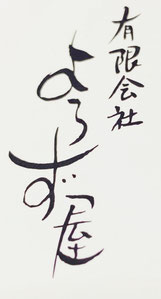 有限会社
よろずや屋